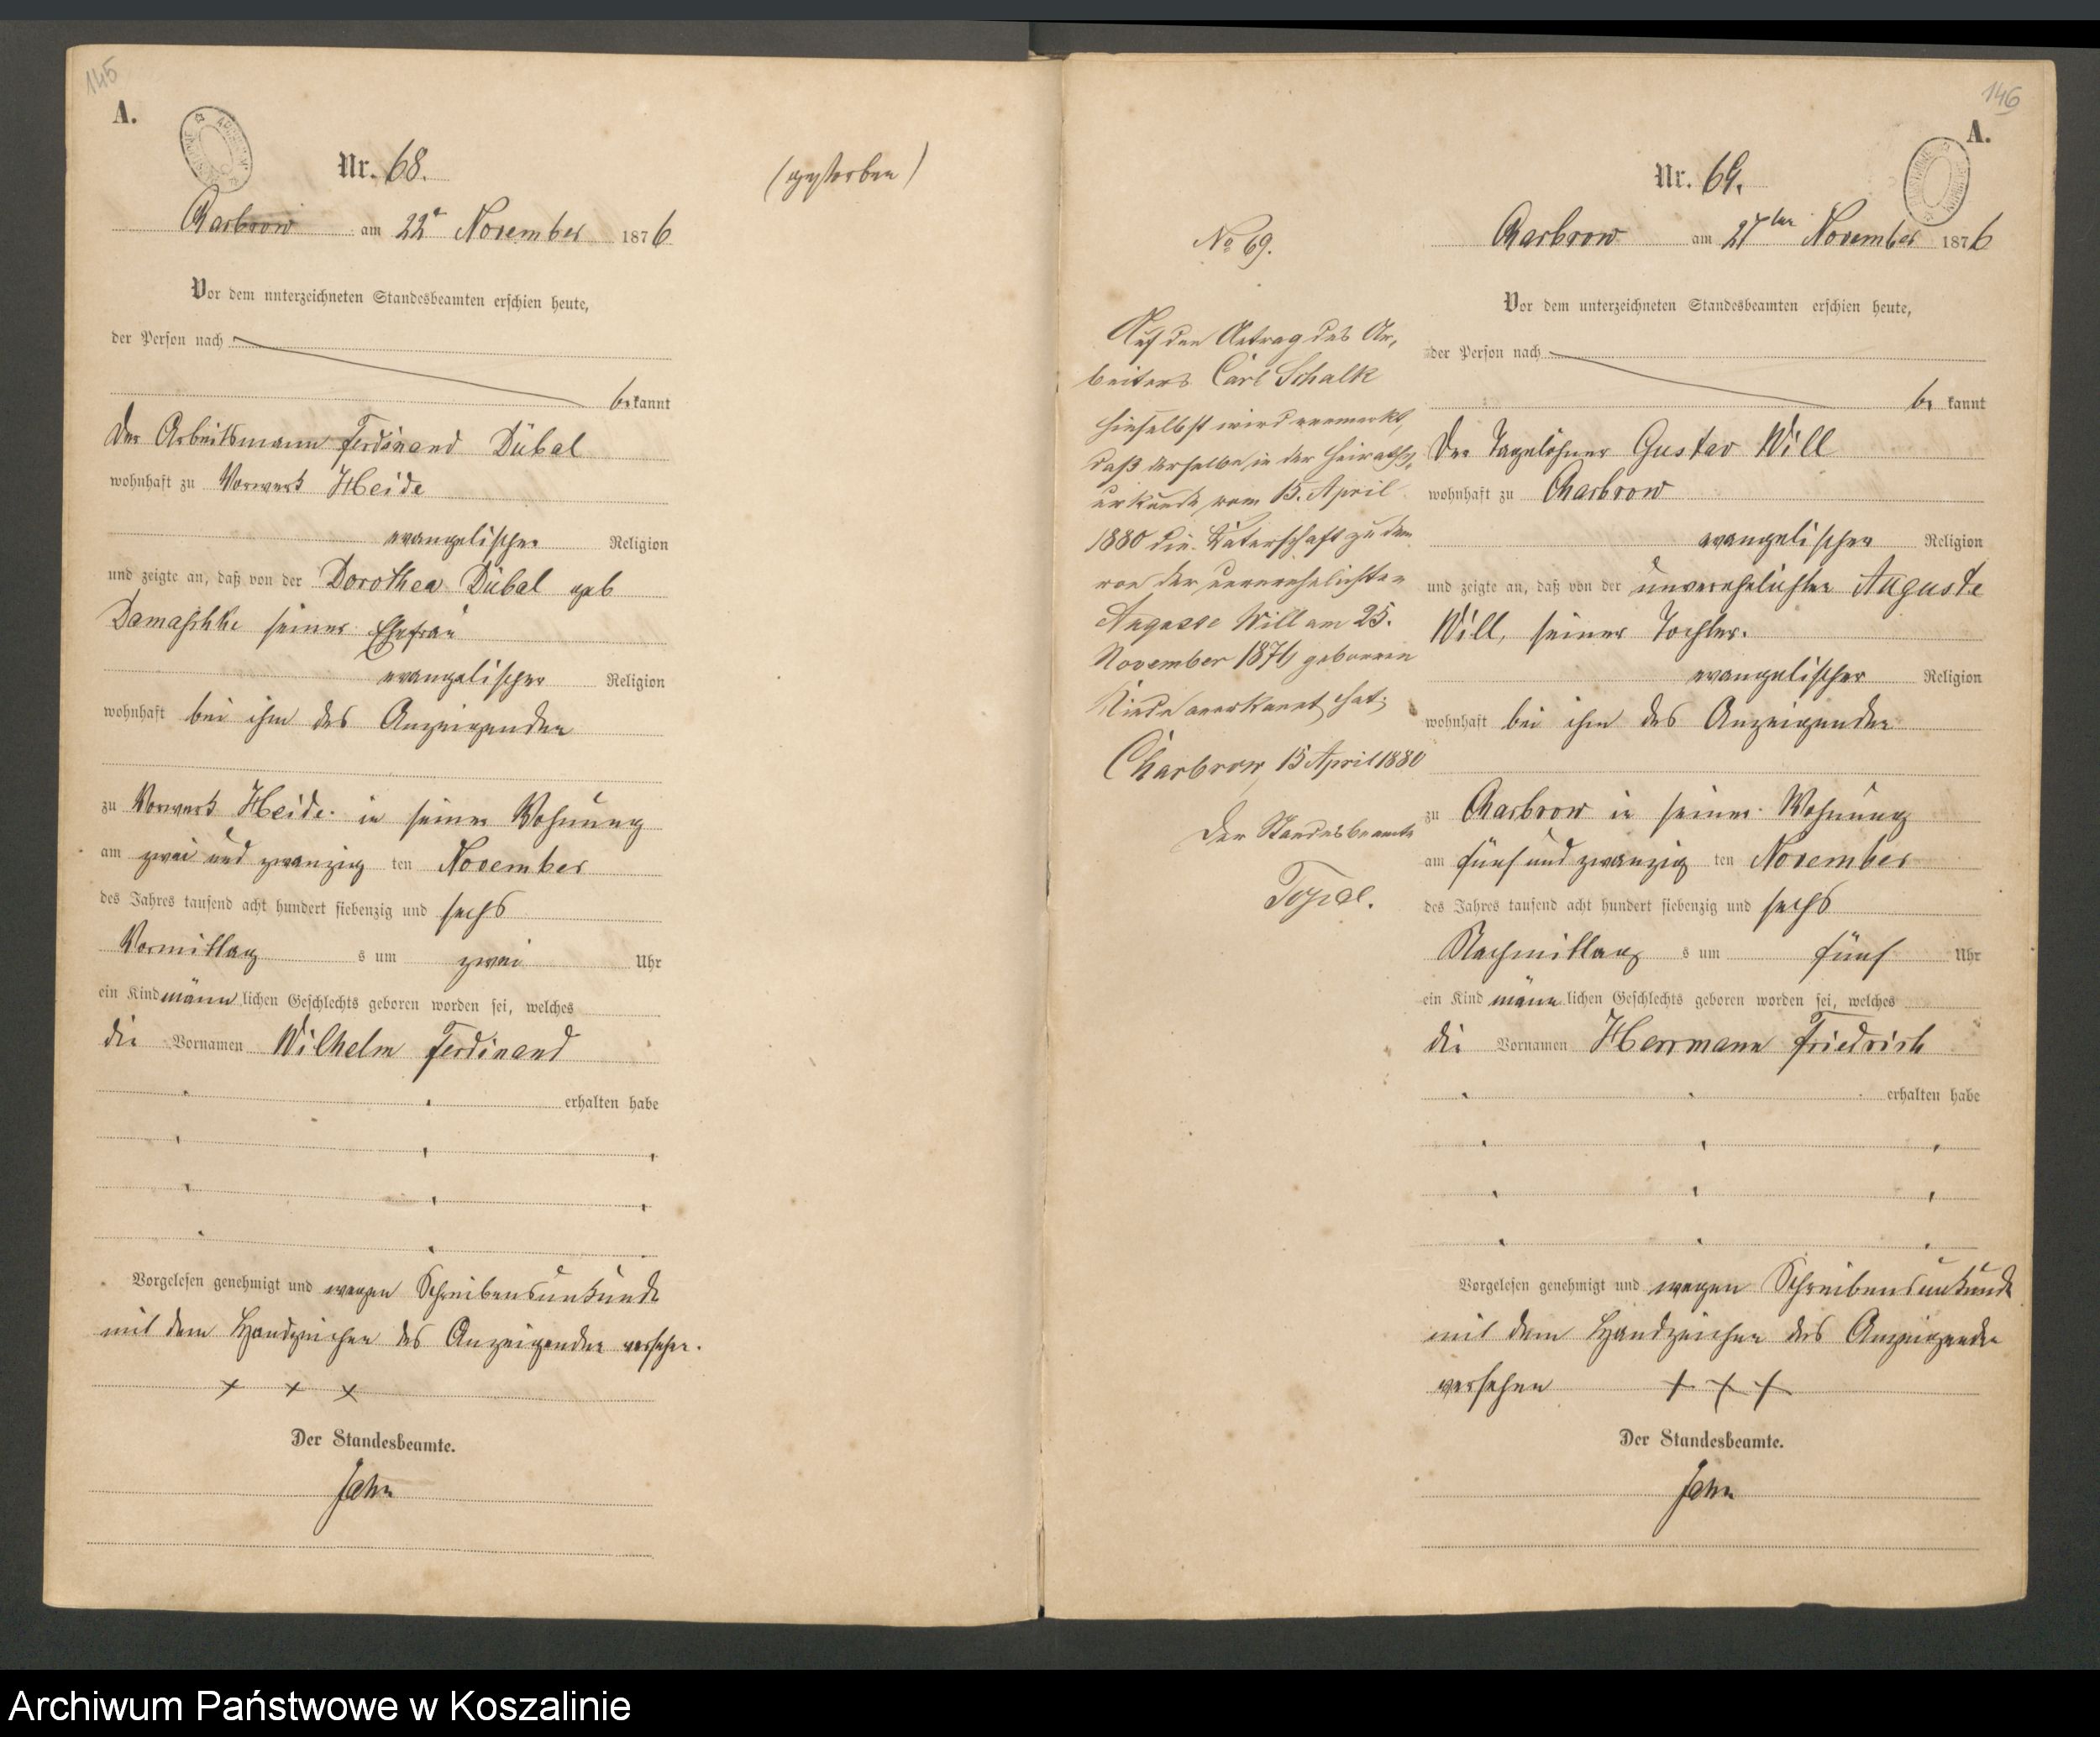 145
A.
Nr. 68.
(gestorben)
Charbrow am 22t November 1876
Vor dem unterzeichneten Standesbeamten erschien heute,
der Person nach
bekannt
der Arbeitsmann Ferdinand Dübal
wohnhaft zu Vorwerk Heide
evangelischer Religion
und zeigte an, daß von der Dorothea Dübal geb
Damaschke seiner Ehefrau
evangelischer Religion
wohnhaft bei ihm des Anzeigenden
zu Vorwerk Heide in seiner Wohnung
am zwei und zwanzig ten November
des Jahres tausend acht hundert siebenzig und sechs
Vormittag s um zwei Uhr
ein Kind männlichen Geschlechts geboren worden sei, welches
die Vornamen Wilhelm Ferdinand
erhalten habe
Vorgelesen genehmigt und wegen Schreibensunkunde
mit dem Handzeichen des Anzeigenden versehen.
+ + +
Der Standesbeamte.
Jahn
No 69.
Auf den Antrag des Ar-
beiters Carl Schalk
hieselbst wird vermerkt,
daß derselbe in der Heiraths-
urkunde vom 15. April
1880 die Vaterschaft zu dem
von der unverehelichten
Auguste Will am 25.
November 1876 geborenen
Kinde anerkannt hat.
Charbrow, 15 April 1880
Der Standesbeamte
146
A.
Nr. 69.
Charbrow am 27ten November 1876
Vor dem unterzeichneten Standesbeamten erschien heute,
der Person nach
be kannt
der Tagelöhner Gustav Will
wohnhaft zu Charbrow
evangelischer Religion
und zeigte an, daß von der unverehelichten Auguste
Will, seiner Tochter.
evangelischer Religion
wohnhaft bei ihm des Anzeigenden
zu Charbrow in seiner Wohnung
am fünf und zwanzig ten November
des Jahres tausend acht hundert siebenzig und sechs
Nachmittag s um fünf Uhr
ein Kind männlichen Geschlechts geboren worden sei, welches
die Vornamen Herrmann Friedrich
erhalten habe
Vorgelesen genehmigt und wegen Schreibensunkunde
mit dem Handzeichen des Anzeigenden
versehen + + +
Der Standesbeamte.
Jahn
Archiwum Państwowe w Koszalinie